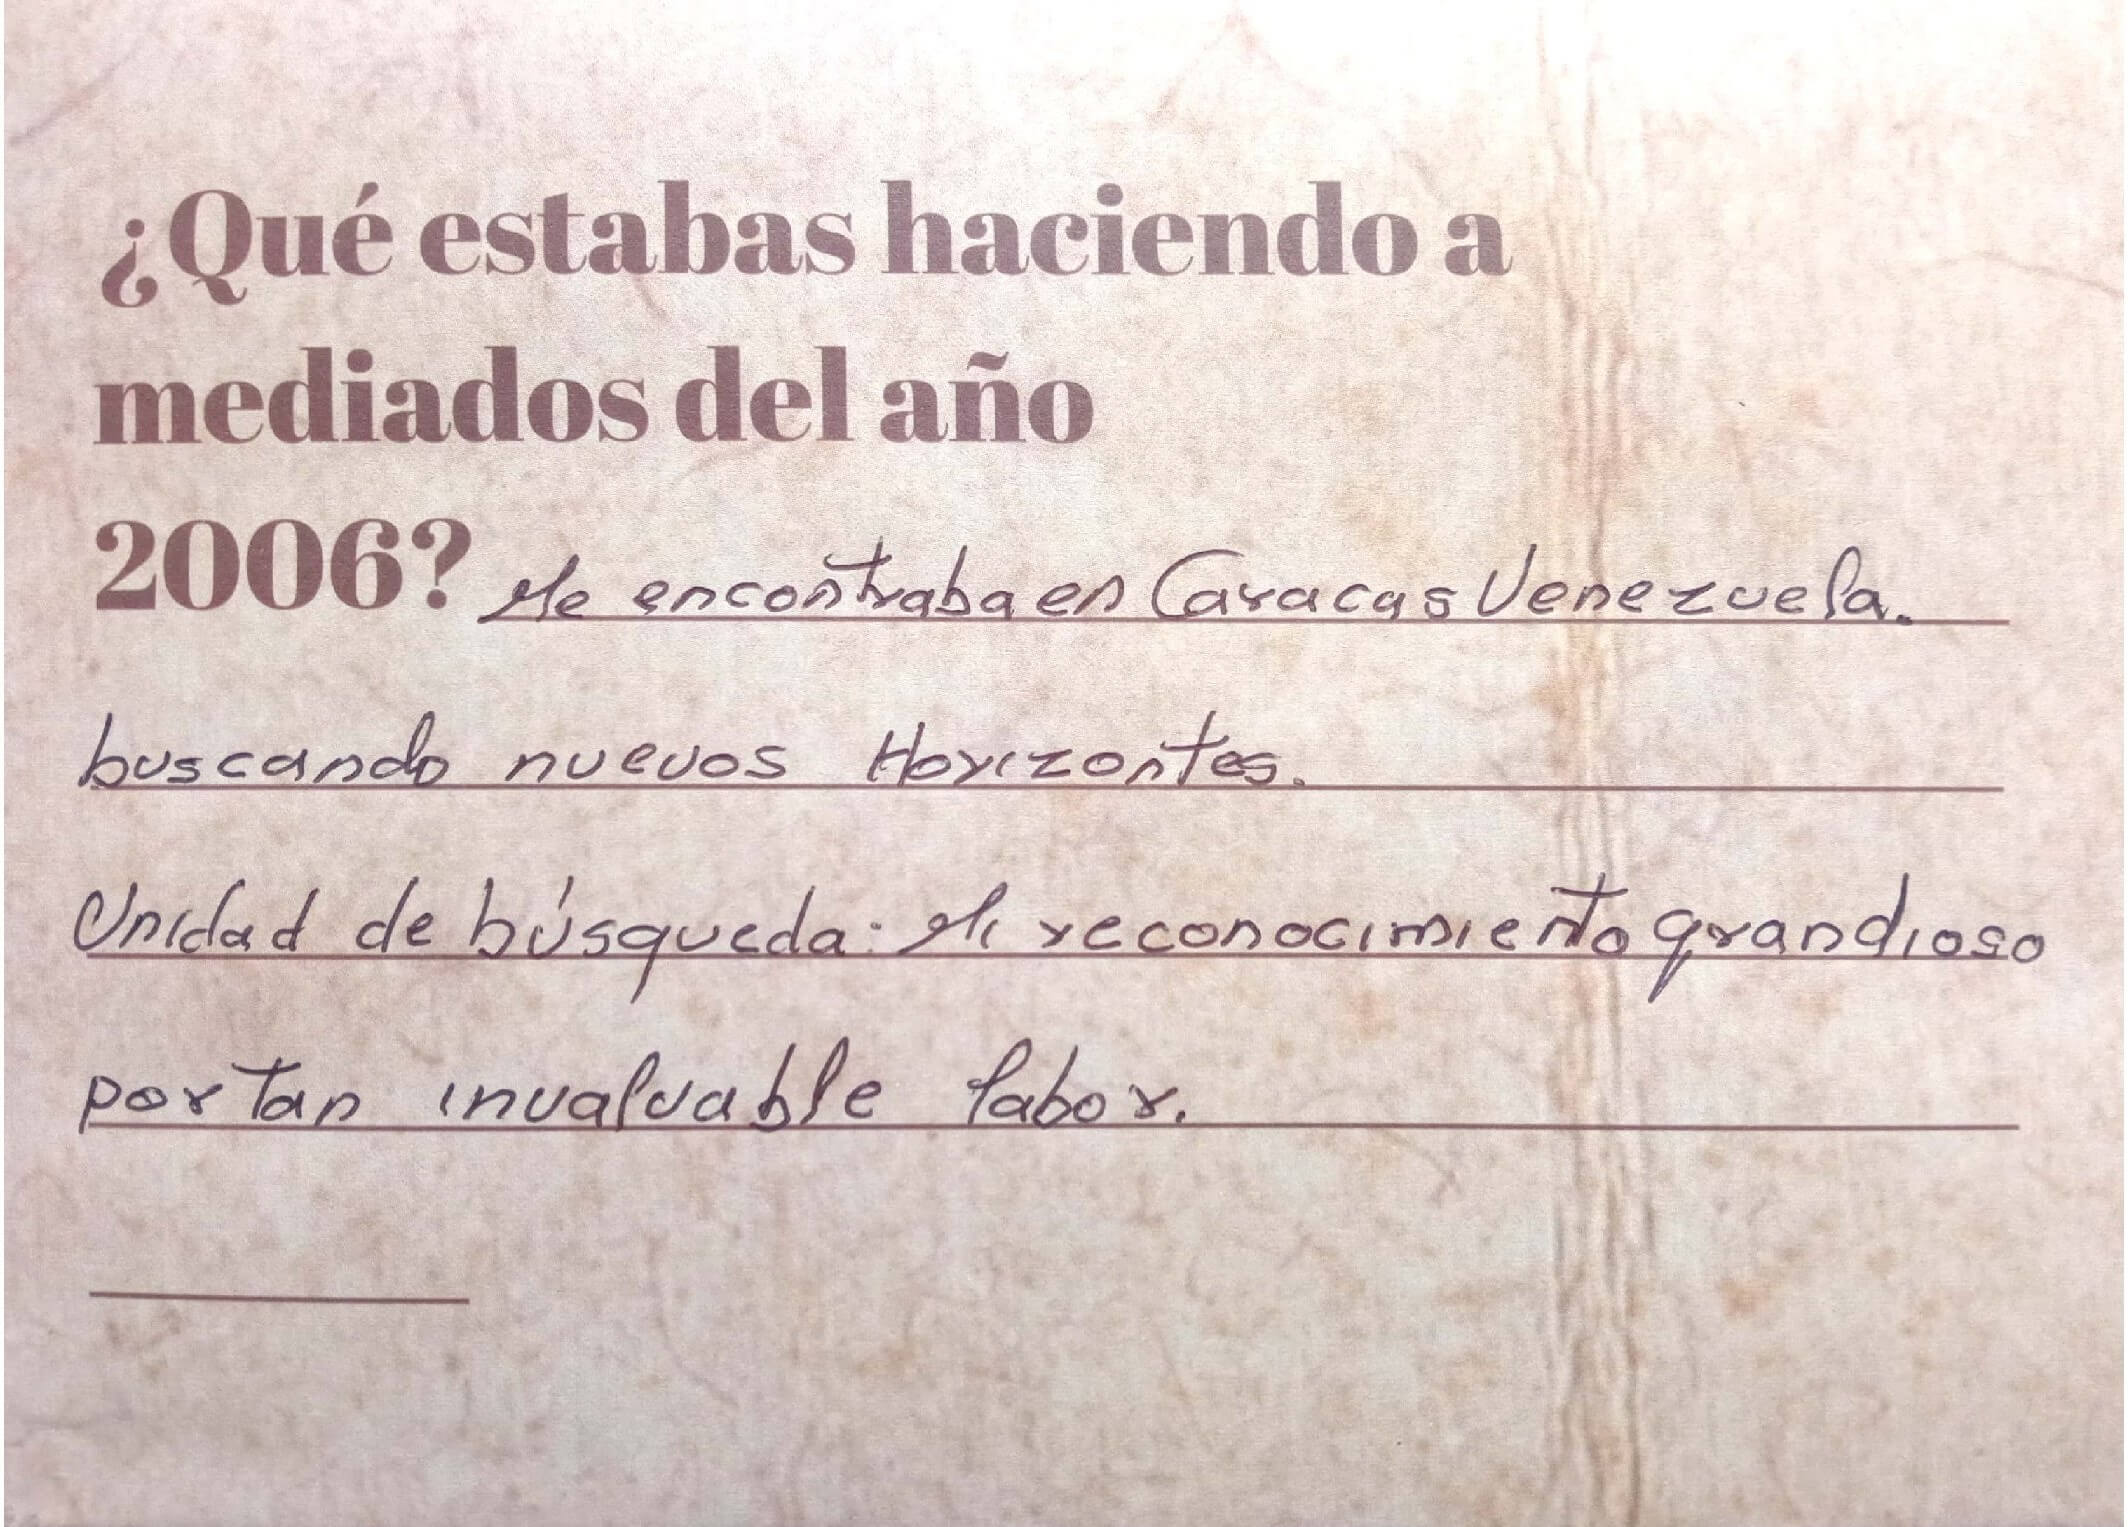 ¿Qué estabas haciendo a
mediados del año
2006? Me encontraba en Caracas Venezuela.
buscando nuevos Horizontes.
Unidad de búsqueda: Mi reconocimiento grandioso
por tan invaluable labor.